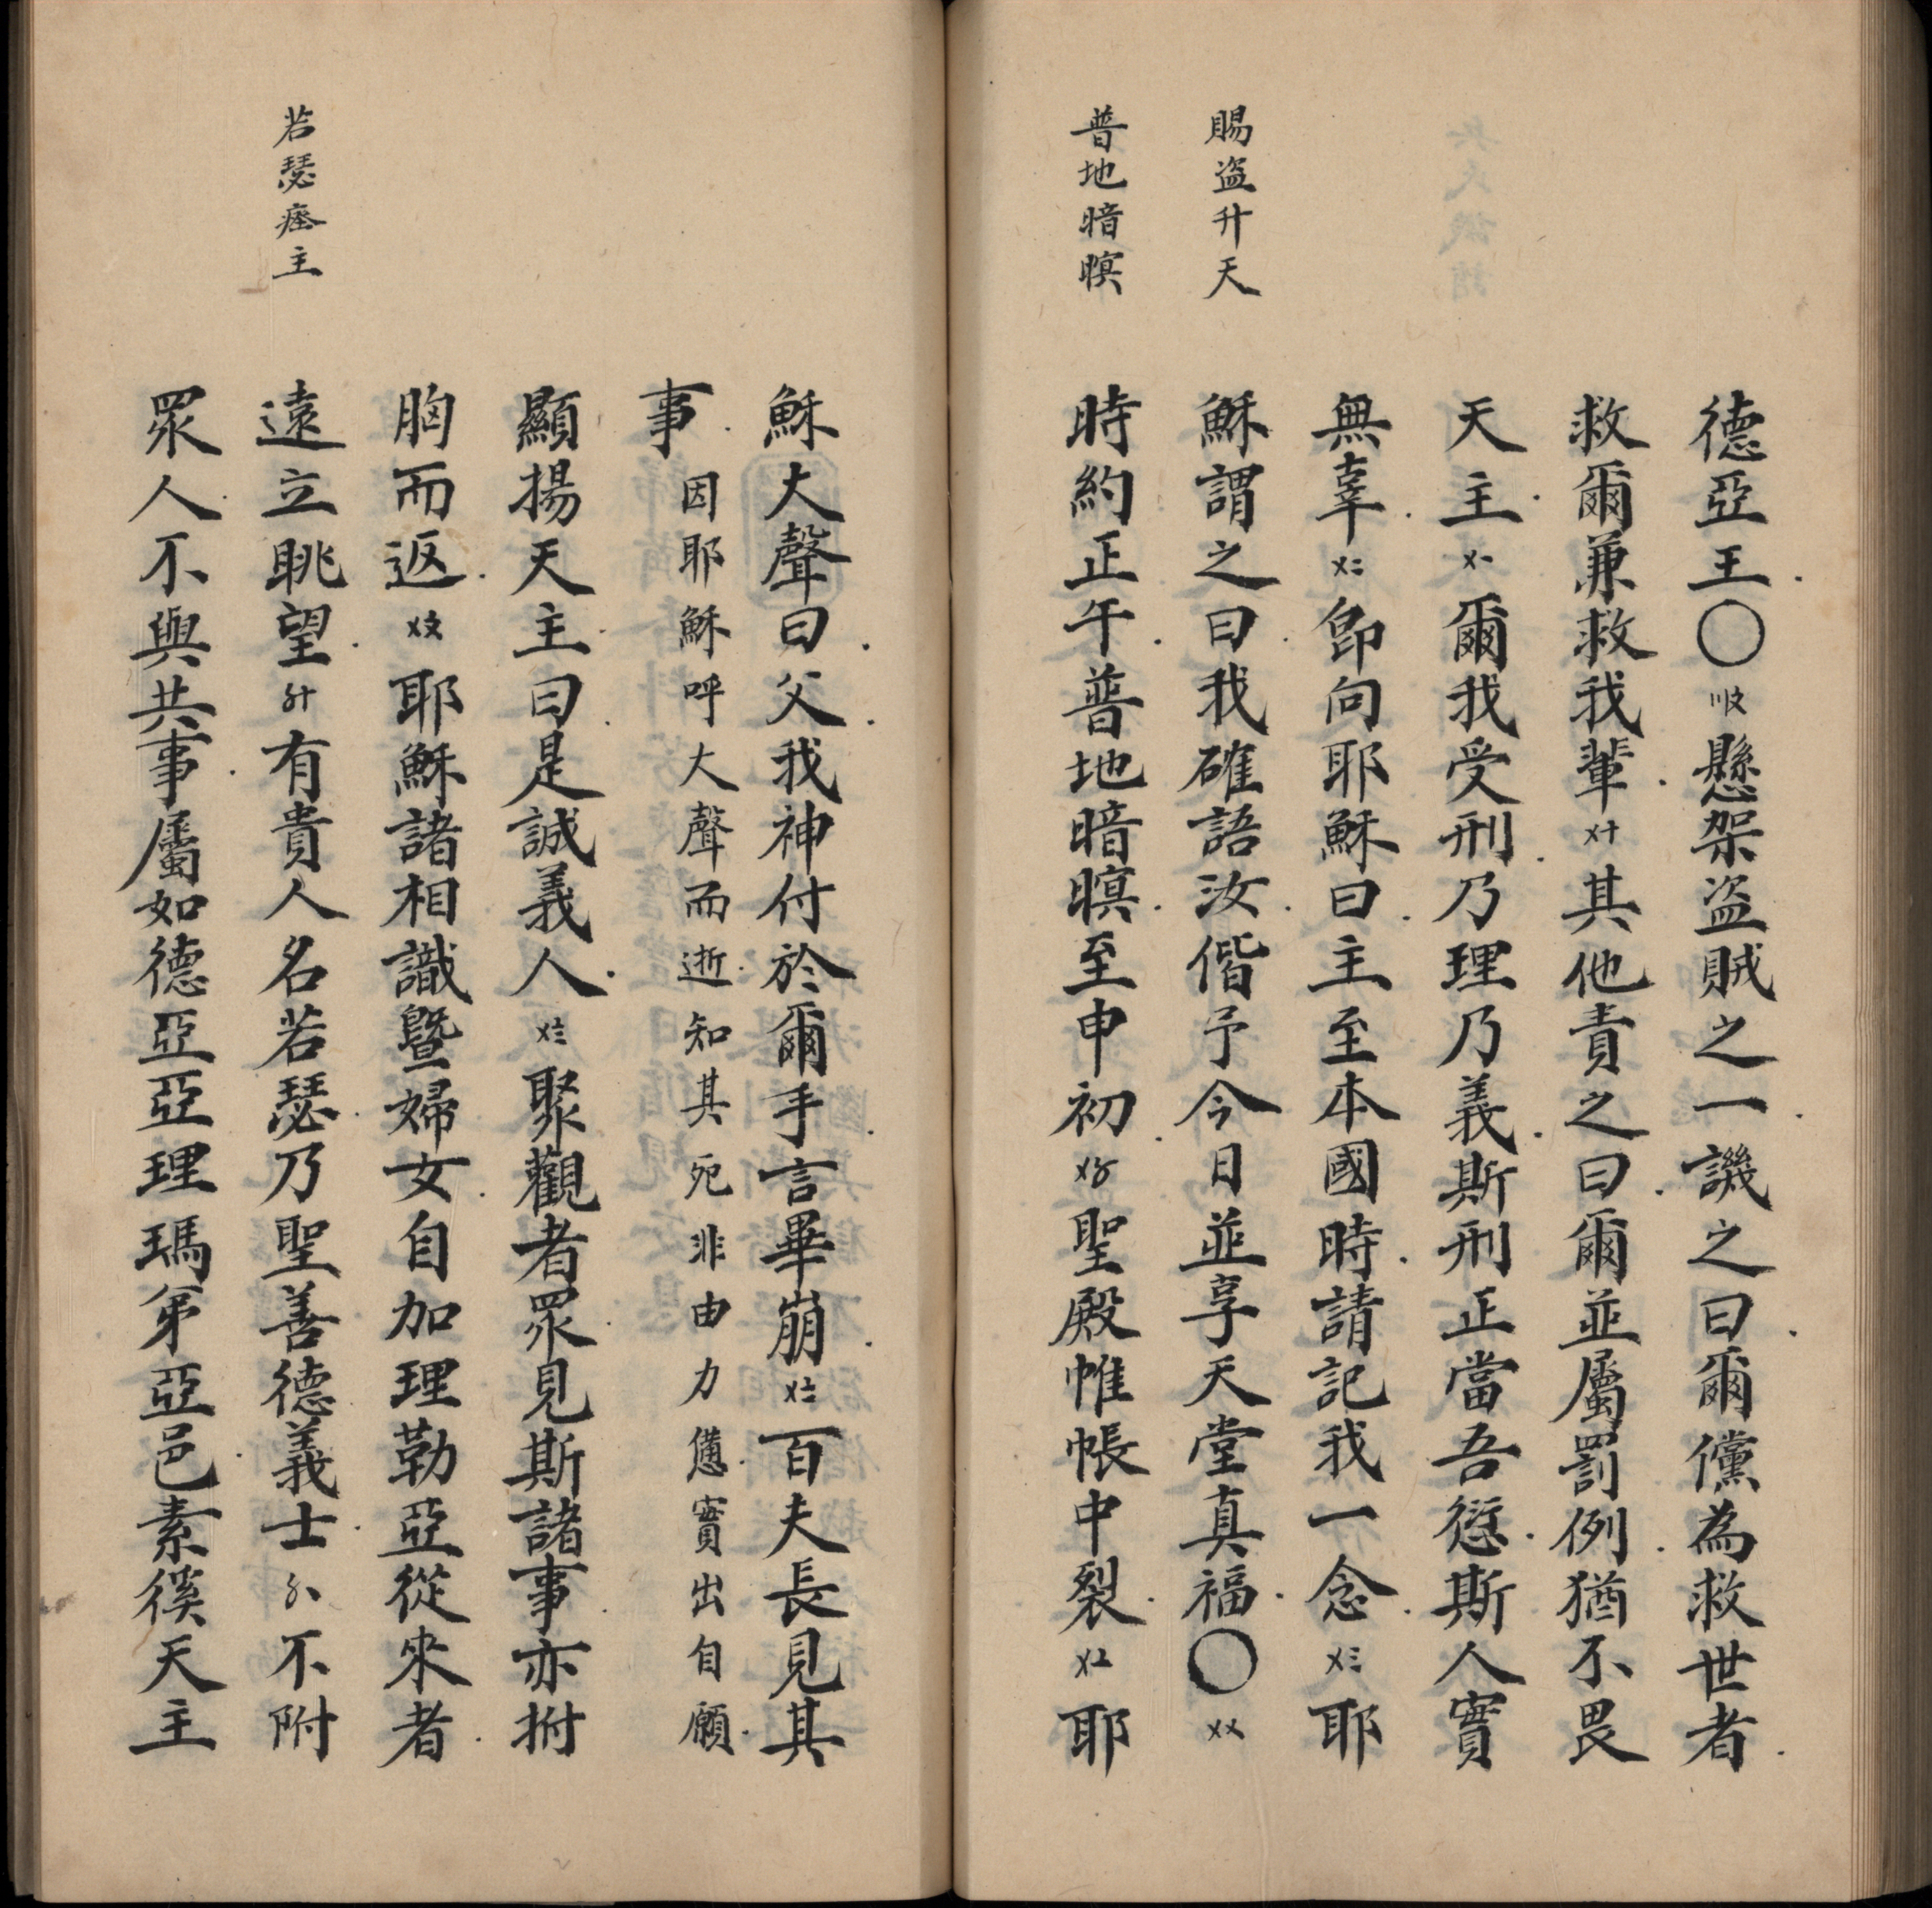 賜盜升天
普地暗暝
德亞王〇〣〩懸架盜賊之一譏之曰爾儻為救世者
救爾兼救我輩〤十其他責之曰爾並屬罰例猶不畏
天主〤一爾我受刑乃理乃義斯刑正當吾愆斯人實
無辜〤二即向耶穌曰主至本國時請記我一念〤三耶
穌謂之曰我確語汝偕予今日並享天堂真福〇〤〤
時約正午普地暗暝至申初〤〥聖殿帷帳中裂〤〦耶
若瑟瘞主
穌大聲曰父我神付於爾手言畢崩〤〧百夫長見其
事因耶穌呼大聲而逝知其死非由力憊實出自願
顯揚天主曰是誠義人〤〨聚觀者眾見斯諸事亦拊
胸而返〤〩耶穌諸相識暨婦女自加理勒亞從來者
遠立眺望〥十有貴人名若瑟乃聖善德義士〥一不附
眾人不與共事屬如德亞亞理瑪弟亞邑素徯天主